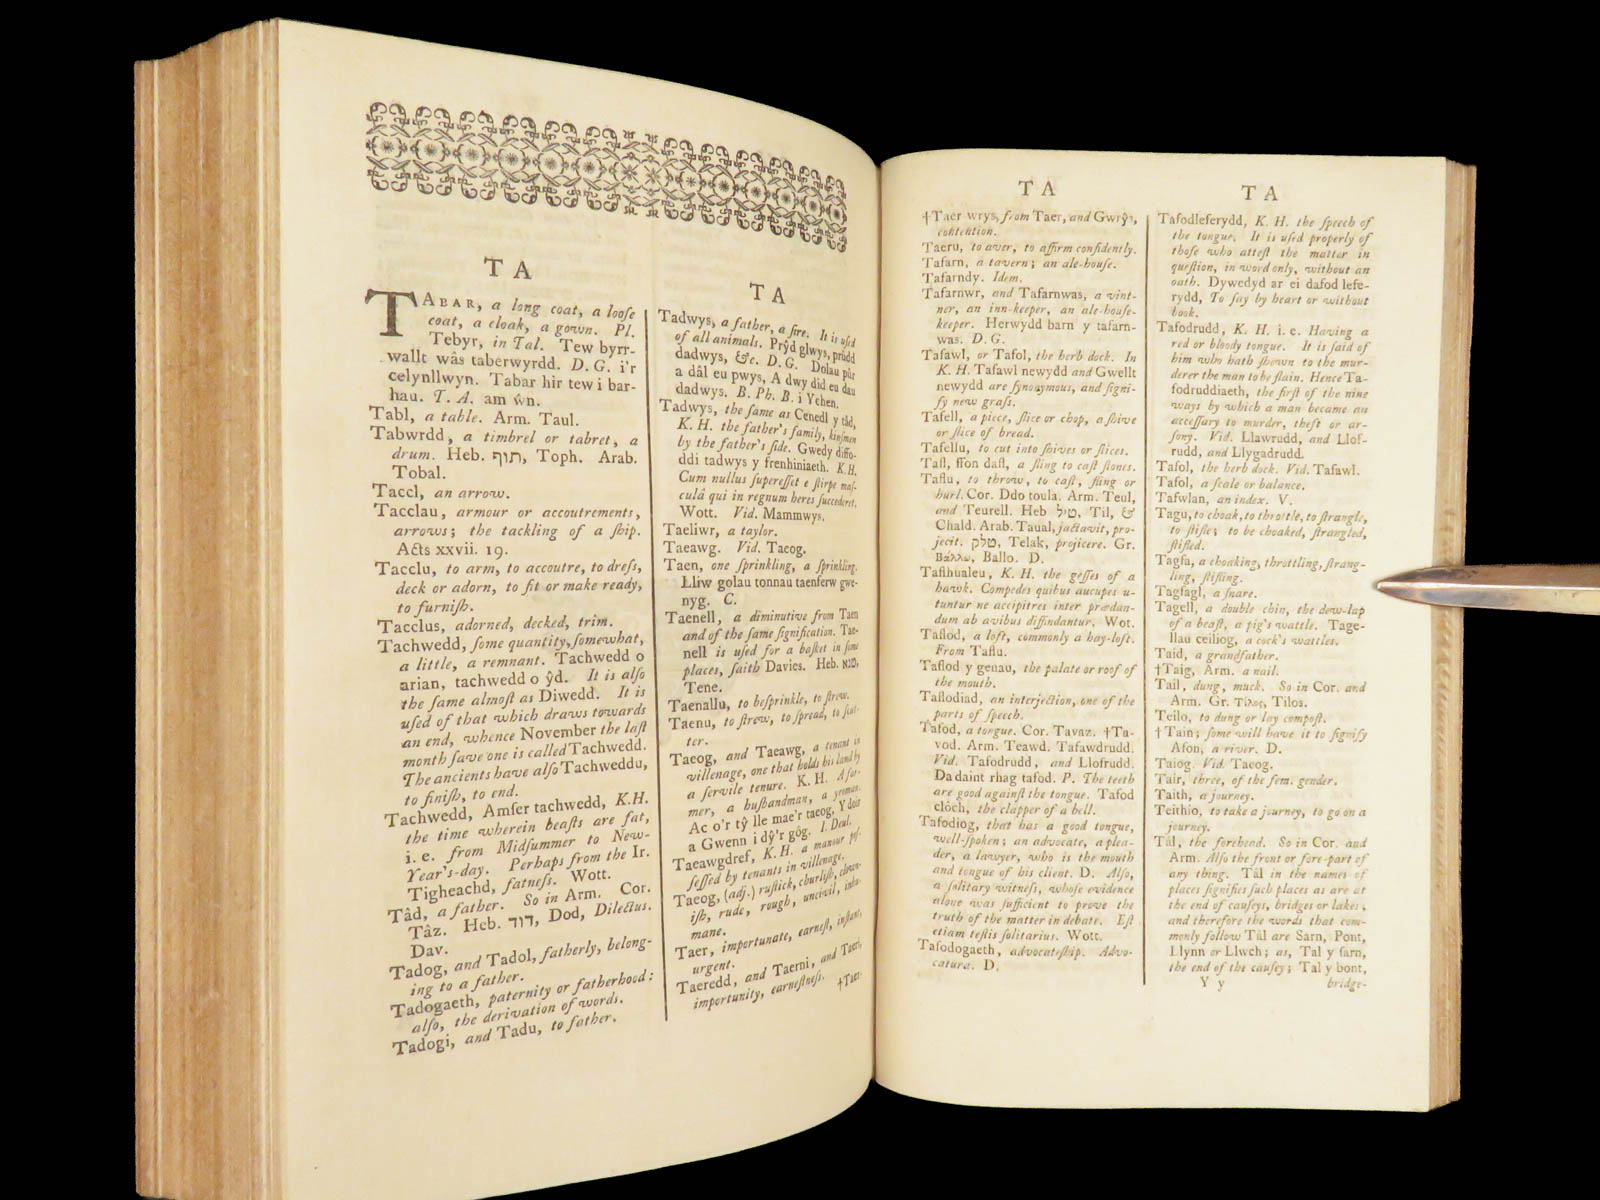 TA
TABAR, a long coat, a looſe
coat, a cloak, a gown. Pl.
Tebyr, in Tal. Tew byrr-
wallt wâs taberwyrdd. D. G. i'r
celynllwyn. Tabar hir tew i bar-
hau. T. A. am ŵn.
Tabl, a table. Arm. Taul.
Tabwrdd, a timbrel or tabret, a
drum. Heb. תוף, Toph. Arab.
Tobal.
Taccl, an arrow.
Tacclau, armour or accoutrements,
arrows; the tackling of a ſhip.
Acts xxvii. 19.
Tacclu, to arm, to accoutre, to dreſs,
deck or adorn, to fit or make ready,
to furniſh.
Tacclus, adorned, decked, trim.
Tachwedd, ſome quantity, ſomewhat,
a little, a remnant. Tachwedd o
arian, tachwedd o ŷd. It is alſo
the ſame almoſt as Diwedd. It is
uſed of that which draws towards
an end, whence November the laſt
month ſave one is called Tachwedd.
The ancients have alſo Tachweddu,
to finiſh, to end.
Tachwedd, Amſer tachwedd, K.H.
the time wherein beaſts are fat,
i. e. from Midſummer to New-
Year's-day. Perhaps from the Ir.
Tigheachd, fatneſs. Wott.
Tâd, a father. So in Arm. Cor.
Tâz. Heb. דוד, Dod, Dilectus.
Dav.
Tadog, and Tadol, fatherly, belong-
ing to a father.
Tadogaeth, paternity or fatherhood:
alſo, the derivation of words.
Tadogi, and Tadu, to father.
TA
Tadwys, a father, a ſire. It is uſed
of all animals. Prŷd glwys, prûdd
dadwys, &c. D. G. Dolau pûr
a dâl eu pwys, A dwy did eu dau
dadwys. B. Ph. B. i Ychen.
Tadwys, the ſame as Cenedl y tâd,
K. H. the father's family, kinſmen
by the father's ſide. Gwedy diffo-
ddi tadwys y frenhiniaeth. K.H.
Cum nullus ſupereſſet e ſtirpe maſ-
culâ qui in regnum heres ſuccederet.
Wott. Vid. Mammwys.
Taeliwr, a taylor.
Taeawg. Vid. Taeog.
Taen, one ſprinkling, a ſprinkling.
Lliw golau tonnau taenferw gwe-
nyg. C.
Taenell, a diminutive from Taen
and of the ſame ſignification. Tae-
nell is uſed for a baſket in ſome
places, ſaith Davies. Heb. טנא,
Tene.
Taenallu, to beſprinkle, to ſtrew.
Taenu, to ſtrew, to ſpread, to ſcat-
ter.
Taeog, and Taeawg, a tenant in
villenage, one that holds his land by
a ſervile tenure. K. H. A far-
mer, a huſbandman, a yeoman.
Ac o'r tŷ lle mae'r taeog, Y doir
a Gwenn i dŷ'r gôg. I. Deul.
Taeawgdref, K. H. a manour poſ-
ſeſſed by tenants in villenage.
Taeog, (adj.) ruſtick, churliſh, clown-
iſh, rude, rough, uncivil, inhu-
mane.
Taer, importunate, earneſt, inſtant,
urgent.
Taeredd, and Taerni, and Taeri,
importunity, earneſtneſs.
†Taer-
TA
†Taer wrys, from Taer, and Gwrŷs,
contention.
Taeru, to aver, to affirm confidently.
Tafarn, a tavern; an ale-houſe.
Tafarndy. Idem.
Tafarnwr, and Tafarnwas, a vint-
ner, an inn-keeper, an ale-houſe-
keeper. Herwydd barn y tafarn-
was. D. G.
Tafawl, or Tafol, the herb dock. In
K. H. Tafawl newydd and Gwellt
newydd are ſynonymous, and ſigni-
fy new graſs.
Tafell, a piece, ſlice or chop, a ſhive
or ſlice of bread.
Tafellu, to cut into ſhives or ſlices.
Tafl, ffon dafl, a ſling to caſt ſtones.
Taflu, to throw, to caſt, fling or
hurl. Cor. Ddo toula. Arm. Teul,
and Teurell. Heb טיל, Til, &
Chald. Arab. Taual, jactavit, pro-
jecit. טלק, Telak, projicere. Gr.
Βάλλω, Ballo. D.
Taflhualeu, K. H. the geſſes of a
hawk. Compedes quibus aucupes u-
tuntur ne accipitres inter prædan-
dum ab avibus diffindantur, Wot.
Taflod, a loft, commonly a hay-loft.
From Taflu.
Taflod y genau, the palate or roof of
the mouth.
Taflodiad, an interjection, one of the
parts of ſpeech.
Tafod, a tongue. Cor. Tavaz. †Ta-
vod. Arm. Teawd. Tafawdrudd.
Vid. Tafodrudd, and Llofrudd.
Da daint rhag tafod. P. The teeth
are good againſt the tongue. Tafod
clôch, the clapper of a bell.
Tafodiog, that has a good tongue,
well-ſpoken; an advocate, a plea-
der, a lawyer, who is the mouth
and tongue of his client. D. Alſo,
a ſolitary witneſs, whoſe evidence
alone was ſufficient to prove the
truth of the matter in debate. Eſt
etiam teſtis ſolitarius. Wott.
Tafodogaeth, advocateſhip. Advo-
catura. D.
TA
Tafodleferydd, K. H. the ſpeech of
the tongue. It is uſed properly of
thoſe who atteſt the matter in
queſtion, in word only, without an
oath. Dywedyd ar ei dafod lefe-
rydd, To ſay by heart or without
book.
Tafodrudd, K. H. i. e. Having a
red or bloody tongue. It is ſaid of
him who hath ſhewn to the mur-
derer the man to be ſlain. Hence Ta-
fodruddiaeth, the firſt of the nine
ways by which a man became an
acceſſary to murder, theft or ar-
ſony. Vid. Llawrudd, and Llof-
rudd, and Llygadrudd.
Tafol, the herb dock. Vid. Tafawl.
Tafol, a ſcale or balance.
Tafwlan, an index. V.
Tagu, to choak, to throttle, to ſtrangle,
to ſtifle; to be choaked, ſtrangled,
ſtifled.
Tagfa, a choaking, throttling, ſtrang-
ling, ſtifling.
Tagfagl, a ſnare.
Tagell, a double chin, the dew-lap
of a beaſt, a pig's wattle. Tage-
llau ceiliog, a cock's wattles.
Taid, a grandfather.
†Taig, Arm. a nail.
Tail, dung, muck. So in Cor. and
Arm. Gr. Τῖλος, Tilos.
Teilo, to dung or lay compoſt.
†Tain; ſome will have it to ſignify
Afon, a river. D.
Taiog. Vid. Taeog.
Tair, three, of the fem. gender.
Taith, a journey.
Teithio, to take a journey, to go on a
journey.
Tâl, the forehead. So in Cor. and
Arm. Alſo the front or fore-part of
any thing. Tâl in the names of
places ſignifies ſuch places as are at
the end of cauſeys, bridges or lakes,
and therefore the words that com-
monly follow Tâl are Sarn, Pont,
Llynn or Llwch; as, Tal y ſarn,
the end of the cauſey; Tal y bont,
Y y bridge-